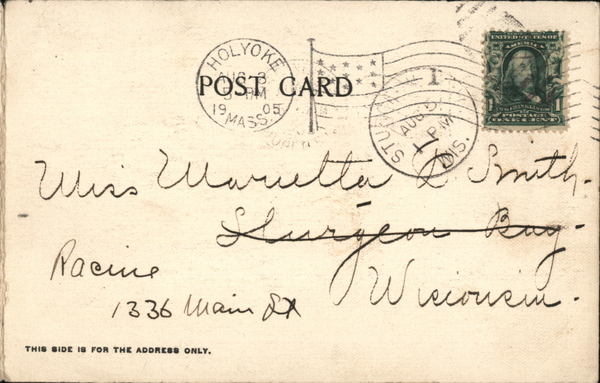 HOLYOKE
AUG 3
AM
1905
MASS.
POST CARD
STU
AUG 5
PM
WIS.
1
UNITED STATES OF
AMERICA
1 1
POSTAGE
ONE CENT
Miss Marietta L Smith-
Sturgeon Bay-
Wisconsin.
Racine
1336 Main St
THIS SIDE IS FOR THE ADDRESS ONLY.